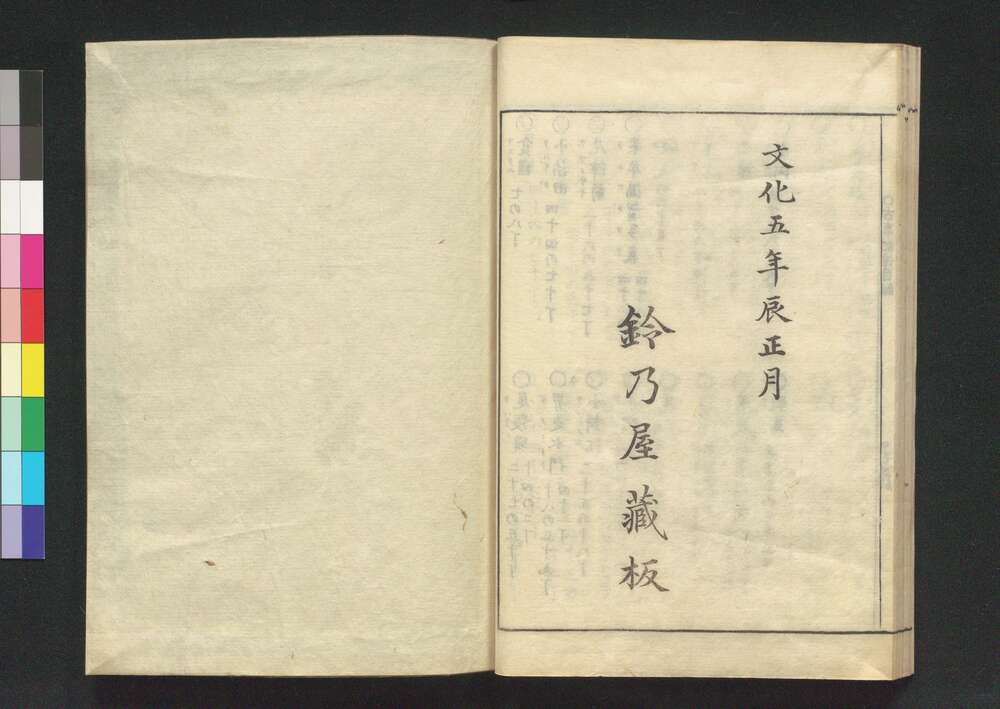 文化五年辰正月
鈴乃屋藏板